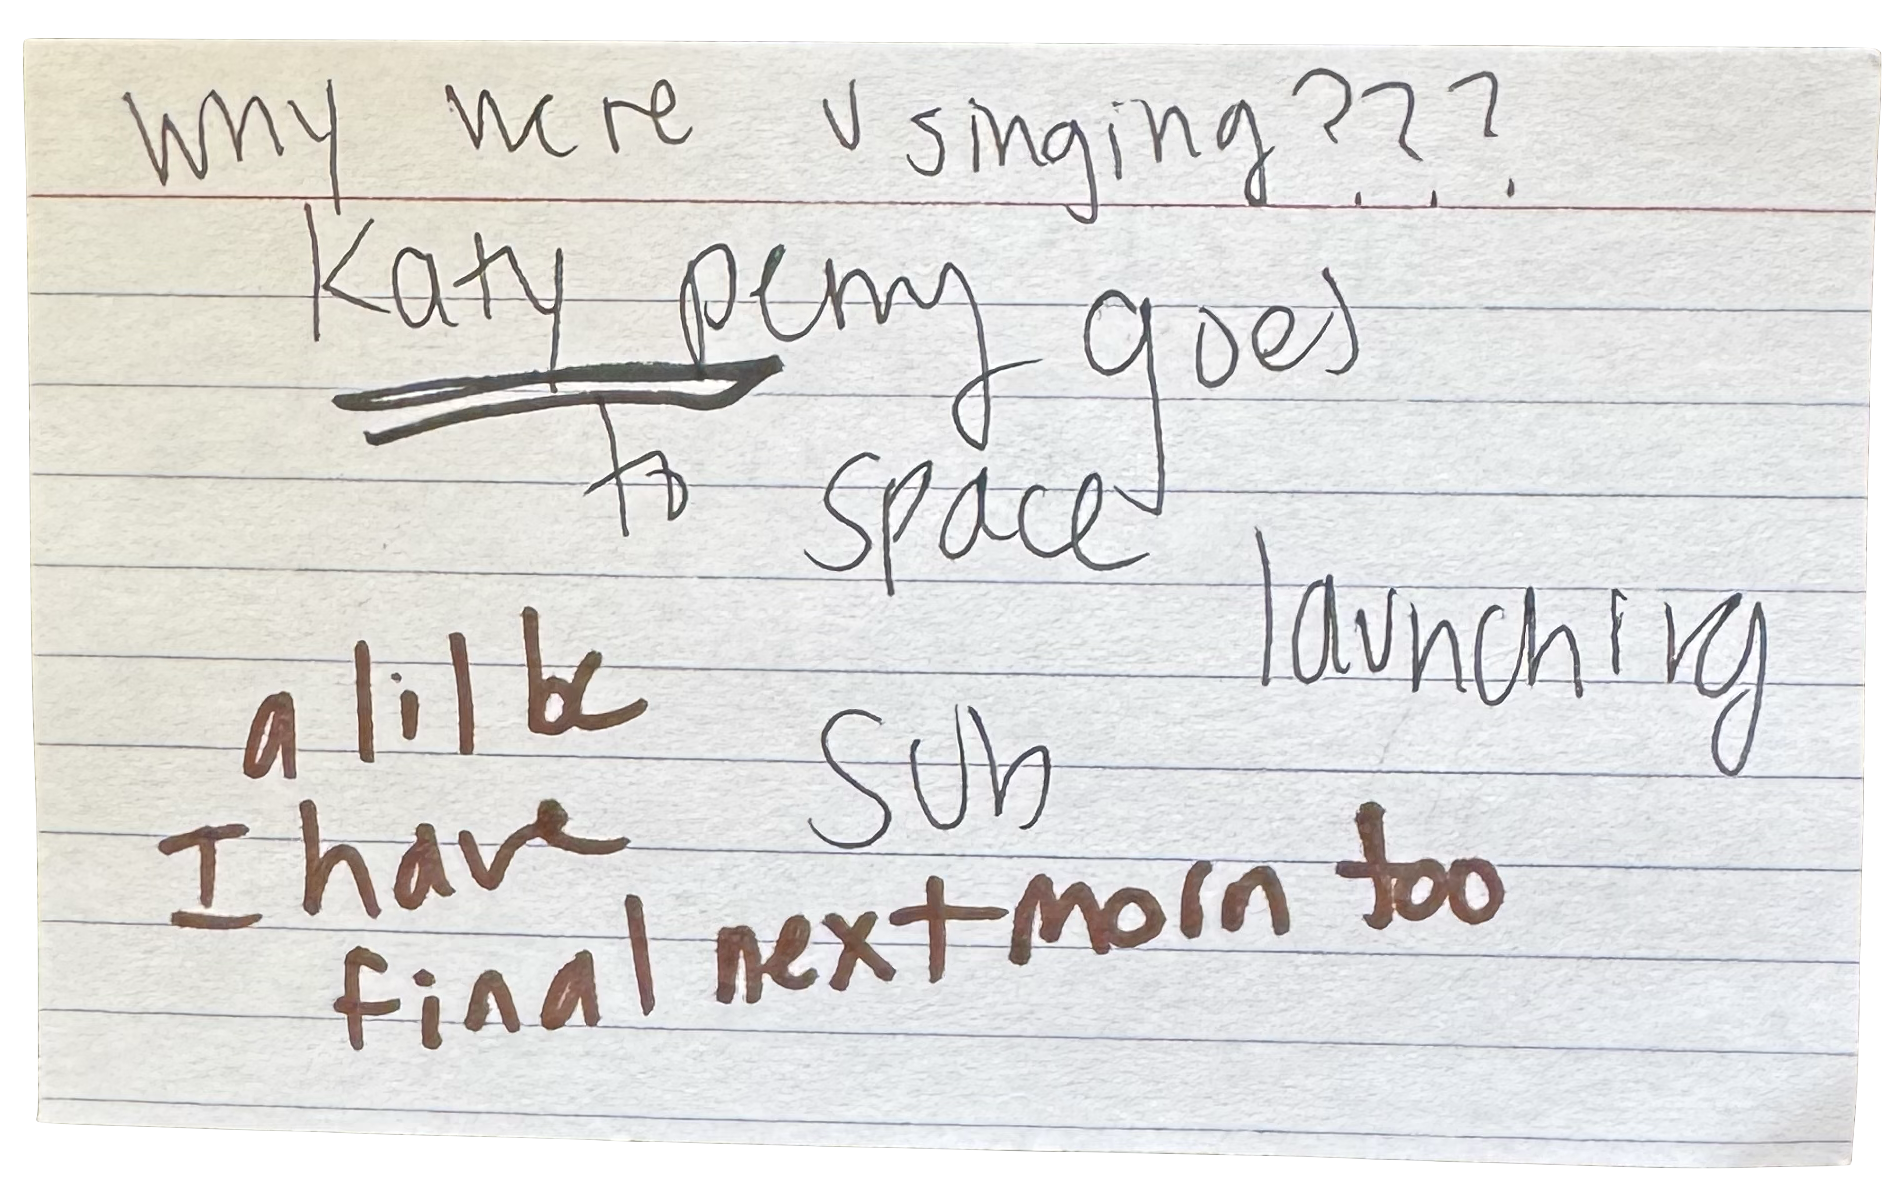 why were u singing???
Katy perry goes
to space
launching
a lil bc
sub
I have
final next morn too